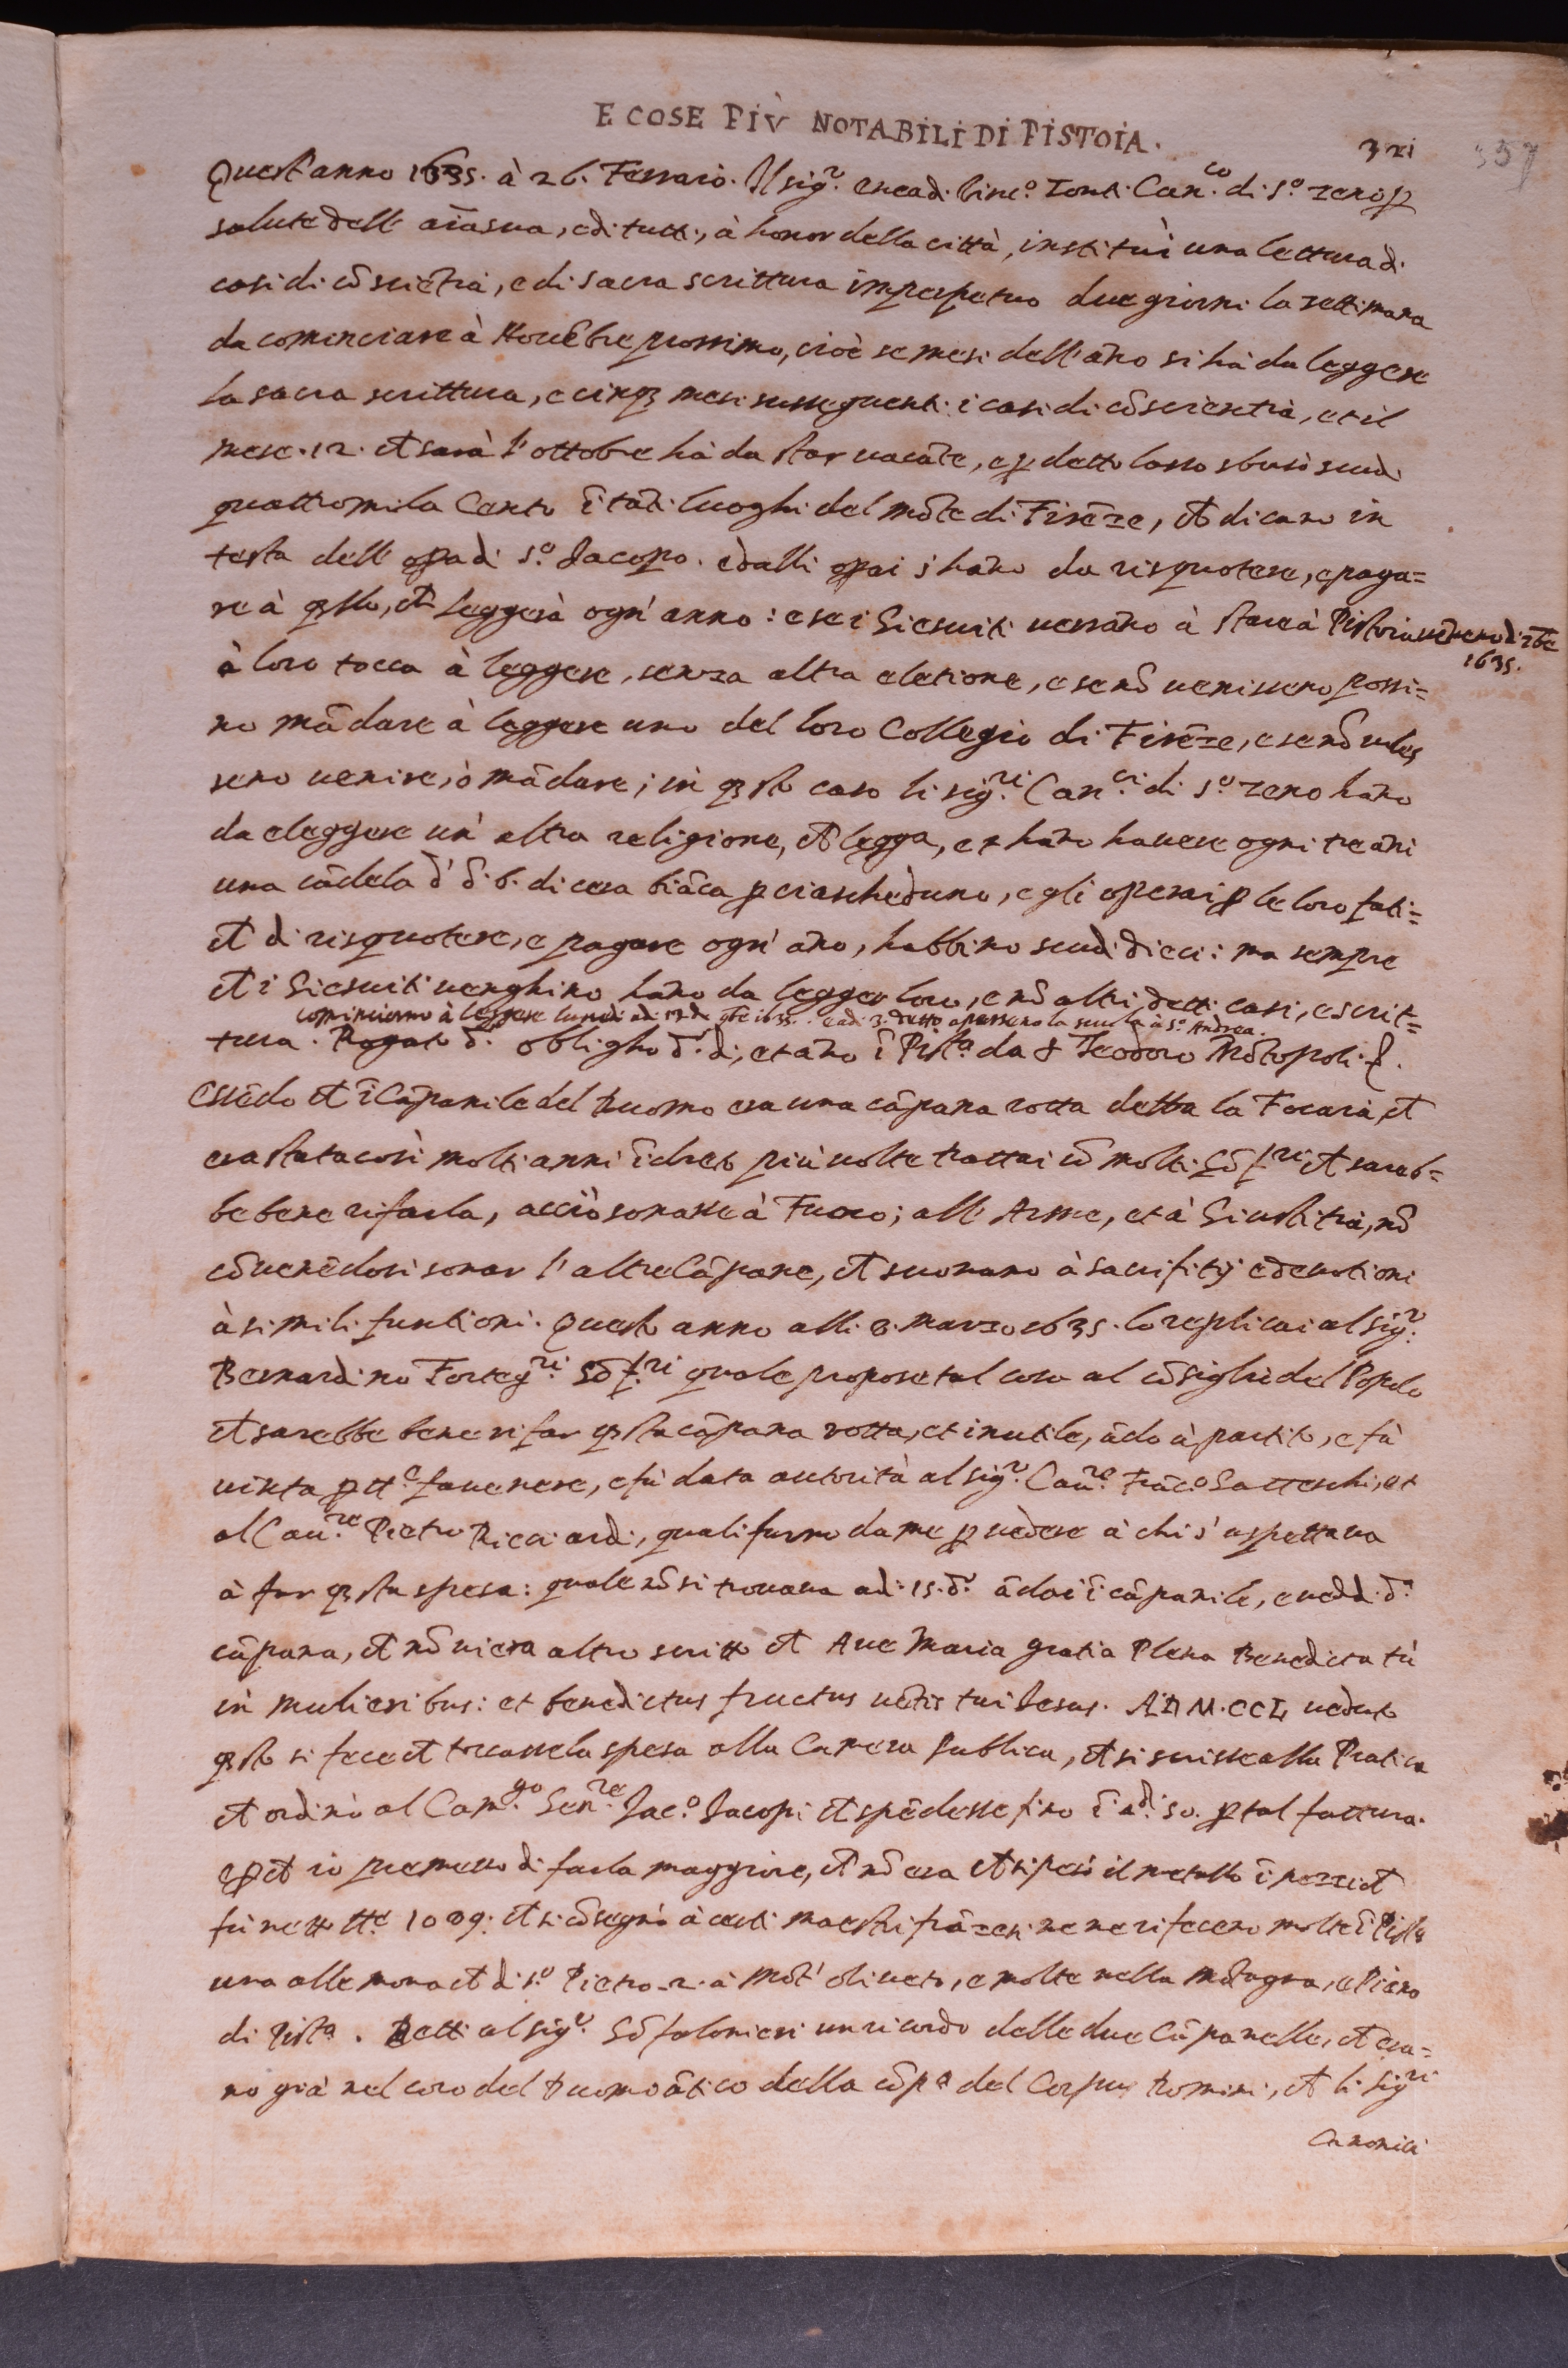 E COSE PIÙ NOTABILI DI PISTOIA.
321 357
Quest'anno 1635. à 26. Ferraio. Il sigʳ. enea di Vincº. Tonti Can.ᶜᵒ di Sº. Zeno ꝑ
salute dell aīa sua, e di tutti, à honor della città, institui una lettura di
casi di cōsciētia, e di sacra scrittura in perpetuo due giorni la settimana
da cominciare à Novēbre prossimo, cioè se mesi dell'āno si hà da leggere
la sacra scrittura, e cinqȝ mesi susseguenti i casi di cōscientia, et il
mese .12. ch sarà l'ottobre hà da star vacāte, e ꝑ detto lasso sborsò scudi
quattromila Cento ī tāti luoghi del mōte di Firēze, ch dicano in
testa dell opa di Sº. Jacopo. e dalli opai s'hāno da risquotere, e paga=
re à qsto, ch leggerà ogn'anno: e se i Giesuiti verrāno à stare à Pistoia
à loro tocca à leggere, senza altra eletione, e se nō venissero possi=
no mādare à leggere uno del loro Collegio di Firēze, e se nō voles
sero venire, ò mādare; in qsto caso li sig.ʳⁱ Can.ᶜⁱ di Sº. Zeno hāno
da eleggere un altra religione, ch legga, e hāno havere ogni tre āni
una cādela d' 6. di cera biāca ꝑ ciascheduno, e gli operai ꝑ le loro fati=
ch di risquotere, e pagare ogn' āno, habbino scudi dieci: ma sempre
ch i Giesuiti venghino hāno da legger loro, e nō altri, detti casi, e scrit=
cominciorno à leggere lunedi
tura. Rogato d. obligho d. di, et āno ī Pistª da Teodoro
Essēdo ch ī Cāpanile del Duomo era una cāpana rotta detta la Focaia, ch
era stata così molti anni īdreto più volte trattai cō molti ch sareb=
be bene rifarla, acciò sonasse à Fuoco; all Arme, et à Giustitia, nō
cōvenēdosi sonar l'altre Cāpane, ch suonano à sacrifitij e devotioni
à simili funtioni. Questo anno alli 8. marzo 1635. lo replicai al sigʳ.
Bernardino Forteg.ʳⁱ quale propose tal cosa al cōsiglio del Popolo
ch sarebbe bene rifar qsta cāpana rotta, et inutile, ādò à partito, e fù
vinta favenere, e fù data autorità al sigʳ. Cav.ʳᵉ Frācº. Gatteschi, et
al Cav.ʳᵉ Pietro Ricciardi, quali furno da me ꝑ vedere à chi s'aspettava
à far qsta spesa: quale nō si trovava adi 15. dº. ādai ī cāpanile, e veddi dª.
cāpana, ch nō vi era altro scritto ch Ave Maria gratia Plena Benedicta tù
in mulieribus: et benedictus fructus vētris tui Jesus. A.D M.CCL veduto
qsto si fece ch toccasse la spesa alla Camera Publica, ch si scrisse alla Pratica
ch ordinò al Cam.ᵍᵒ Sen.ʳᵉ Jacº. Jacopi ch spēdesse fino ī 50. ꝑ tal fattura.
ꝑch io premesso di farla maggiore, ch nō era ch si pesò il metallo ī pezzi ch
fù netto 1009. ch si cōsegnò à certi maestri frāzesi ne ne rifecero molte ī Pistª
una alle monach di Sº. Pietro. 2. à Mōt' oliveto, e molte nella mōtagna, e Piano
di Pistª. Detti al sigʳ. Gōfalonieri un ricordo delle due Cāpanelle, ch era=
no già nel coro del Duomo ātico della cōpª del Corpus Domini, ch li sigʳⁱ
Canonici
1635.